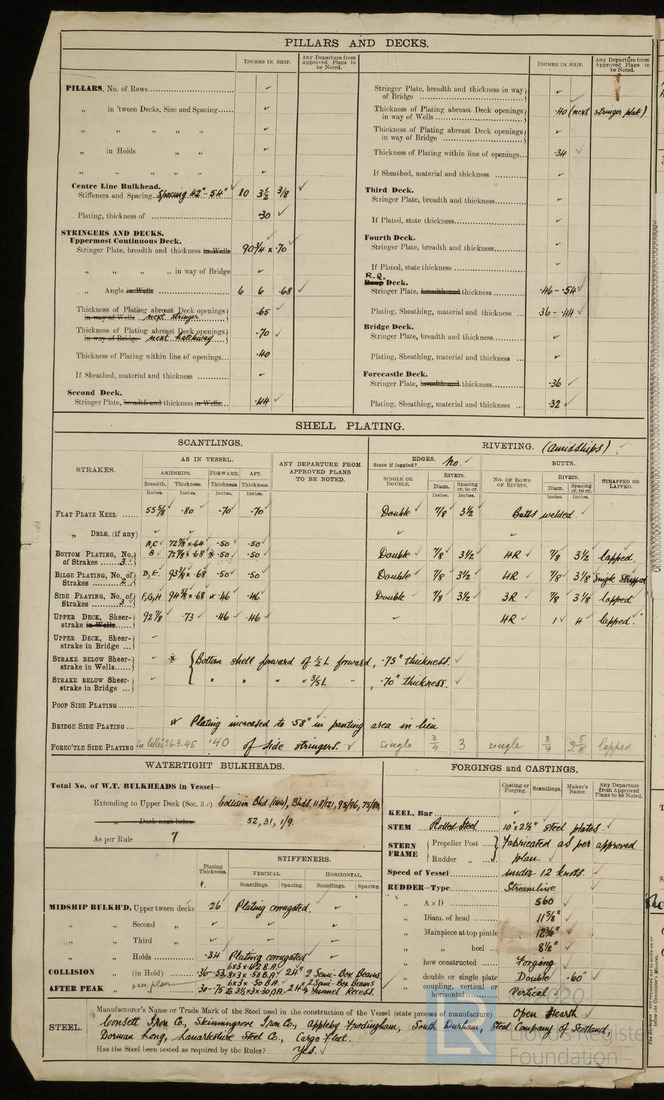 PILLARS AND DECKS.
INCHES IN SHIP.
Any Departure from Approved Plans to be Noted.
PILLARS, No. of Rows
„ in 'tween Decks, Size and Spacing
„ „ „ „ „
„ in Holds „ „
„ „ „ „ „
Centre Line Bulkhead.
Stiffeners and Spacing. Spacing 42"-54" 10 3½ 3/8
Plating, thickness of ·30
STRINGERS AND DECKS.
Uppermost Continuous Deck.
Stringer Plate, breadth and thickness in Wells 90¾ x ·70
„ „ „ „ in way of Bridge
„ Angle in Wells 6 6 ·68
Thickness of Plating abreast Deck openings in way of Wells next stringer ·65
Thickness of Plating abreast Deck openings in way of Bridge next hatchway ·70
Thickness of Plating within line of openings ·40
If Sheathed, material and thickness
Second Deck.
Stringer Plate, breadth and thickness in Wells ·44
INCHES IN SHIP.
Any Departure from Approved Plans to be Noted.
Stringer Plate, breadth and thickness in way of Bridge
Thickness of Plating abreast Deck openings in way of Wells ·40 (next stringer plate)
Thickness of Plating abreast Deck openings in way of Bridge
Thickness of Plating within line of openings ·34
If Sheathed, material and thickness
Third Deck.
Stringer Plate, breadth and thickness
If Plated, state thickness
Fourth Deck.
Stringer Plate, breadth and thickness
If Plated, state thickness
R.Q.
Poop Deck.
Stringer Plate, breadth and thickness ·46-·54
Plating, Sheathing, material and thickness ·36-·44
Bridge Deck.
Stringer Plate, breadth and thickness
Plating, Sheathing, material and thickness
Forecastle Deck.
Stringer Plate, breadth and thickness ·36
Plating, Sheathing, material and thickness ·32
SHELL PLATING.
SCANTLINGS.
RIVETING. (Amidships)
STRAKES.
AS IN VESSEL.
AMIDSHIPS. FORWARD. AFT.
Breadth. Thickness. Thickness. Thickness.
Inches. Inches. Inches. Inches.
ANY DEPARTURE FROM APPROVED PLANS TO BE NOTED.
EDGES.
State if joggled? No.
SINGLE OR DOUBLE.
RIVETS.
Diam. Spacing cr. to cr.
Inches. Inches.
BUTTS.
NO. OF ROWS OF RIVETS.
RIVETS.
Diam. Spacing cr. to cr.
Inches. Inches.
STRAPPED OR LAPPED.
FLAT PLATE KEEL 55 5/8 ·80 ·70 ·70 Double 7/8 3½ Butts welded
„ DBLG. (if any)
A,C 72 7/8 x ·64 ·50 ·50
BOTTOM PLATING, No. of Strakes 3 B 72 7/8 ·68 * ·50 ·50 Double 7/8 3½ 4R 7/8 3½ lapped.
BILGE PLATING, No. of Strakes 2 D, E 93⅛ x ·68 ·50 ·50 Double 7/8 3½ 4R 7/8 3⅛ Single Strapped
SIDE PLATING, No. of Strakes 3 F,G,H 94⅜ x ·68 * ·46 ·46 Double 7/8 3½ 3R 7/8 3⅛ lapped
UPPER DECK, Sheer-strake in Wells 92 7/8 ·73 ·46 ·46 4R 1 4 lapped.
UPPER DECK, Sheer-strake in Bridge
STRAKE BELOW Sheer-strake in Wells * Bottom shell forward of ½L forward, ·75" thickness.
STRAKE BELOW Sheer-strake in Bridge „ „ „ „ 3/5L „ ·70" thickness.
POOP SIDE PLATING
BRIDGE SIDE PLATING * Plating increased to ·58" in panting area in lieu
FORECTLE SIDE PLATING 26.3.45 ·40 of side stringers. Single 3/4 3 single 3/4 2 5/8 lapped
WATERTIGHT BULKHEADS.
Total No. of W.T. BULKHEADS in Vessel—
Extending to Upper Deck (Sec. 3 c) Collision Bhd (144), Bhds. 118/121, 95/96, 75/80,
„ Deck next below 52, 31, 1/9.
As per Rule 7
STIFFENERS.
Plating Thickness.
VERTICAL. HORIZONTAL.
Scantlings. Spacing. Scantlings. Spacing.
MIDSHIP BULKH'D, Upper tween decks ·26 Plating corrugated.
„ „ Second „
„ „ Third „
„ „ Holds ·34 Plating corrugated
COLLISION „ (in Hold) ·36-·53 24" 2 Semi-Box Beams
AFTER PEAK „ „ ·30-·75 24" 2 Semi-Box Beams & Tunnel Recess.
FORGINGS and CASTINGS.
Casting or Forging. Scantlings. Maker's Name. Any Departure from Approved Plans to be Noted.
KEEL, Bar
STEM Rolled Steel 10" x 2½" steel plates.
STERN FRAME { Propeller Post Fabricated as per approved
Rudder „ plan.
Speed of Vessel under 12 knots.
RUDDER—Type Streamline
„ A x D 560
„ Diam. of head 11 5/8"
„ Mainpiece at top pintle 12¾"
„ „ heel 8½"
„ how constructed Forging
„ double or single plate Double ·60"
„ coupling, vertical or horizontal Vertical
STEEL.
Manufacturer's Name or Trade Mark of the Steel used in the construction of the Vessel (state process of manufacture) Open Hearth
Consett Iron Co., Skinningrove Iron Co., Appleby Frodingham, South Durham, Steel Company of Scotland,
Dorman Long, Lanarkshire Steel Co., Cargo Fleet.
Has the Steel been tested as required by the Rules? Yes.
© 2020
Lloyd's Register
Foundation